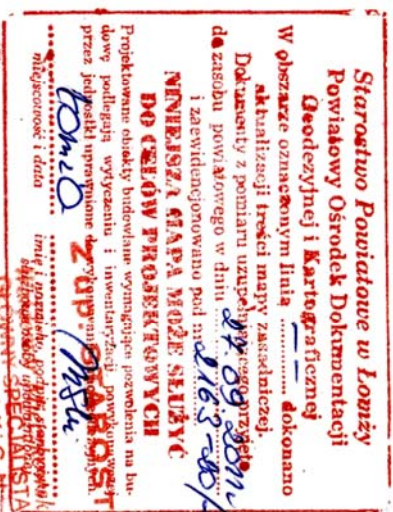 Starostwo Powiatowe w Łomży
Powiatowy Ośrodek Dokumentacji
Geodezyjnej i Kartograficznej
W obszarze oznaczonym linią ........... dokonano
aktualizacji treści mapy zasadniczej.
Dokumenty z pomiaru przyjęto
do zasobu powiatowego w dniu 27.09.2011r
i zaewidencjonowano pod nr 2163-
NINIEJSZA MAPA MOŻE SŁUŻYĆ
DO CELÓW PROJEKTOWYCH
Projektowane obiekty budowlane wymagające pozwolenia na bu-
dowę podlegają wytyczeniu i inwentaryzacji powykonawczej
przez jednostki uprawnione do wykonywania
Z up. STAROSTY
Łomża
miejscowość i data
imię i nazwisko
GŁÓWNY SPECJALISTA